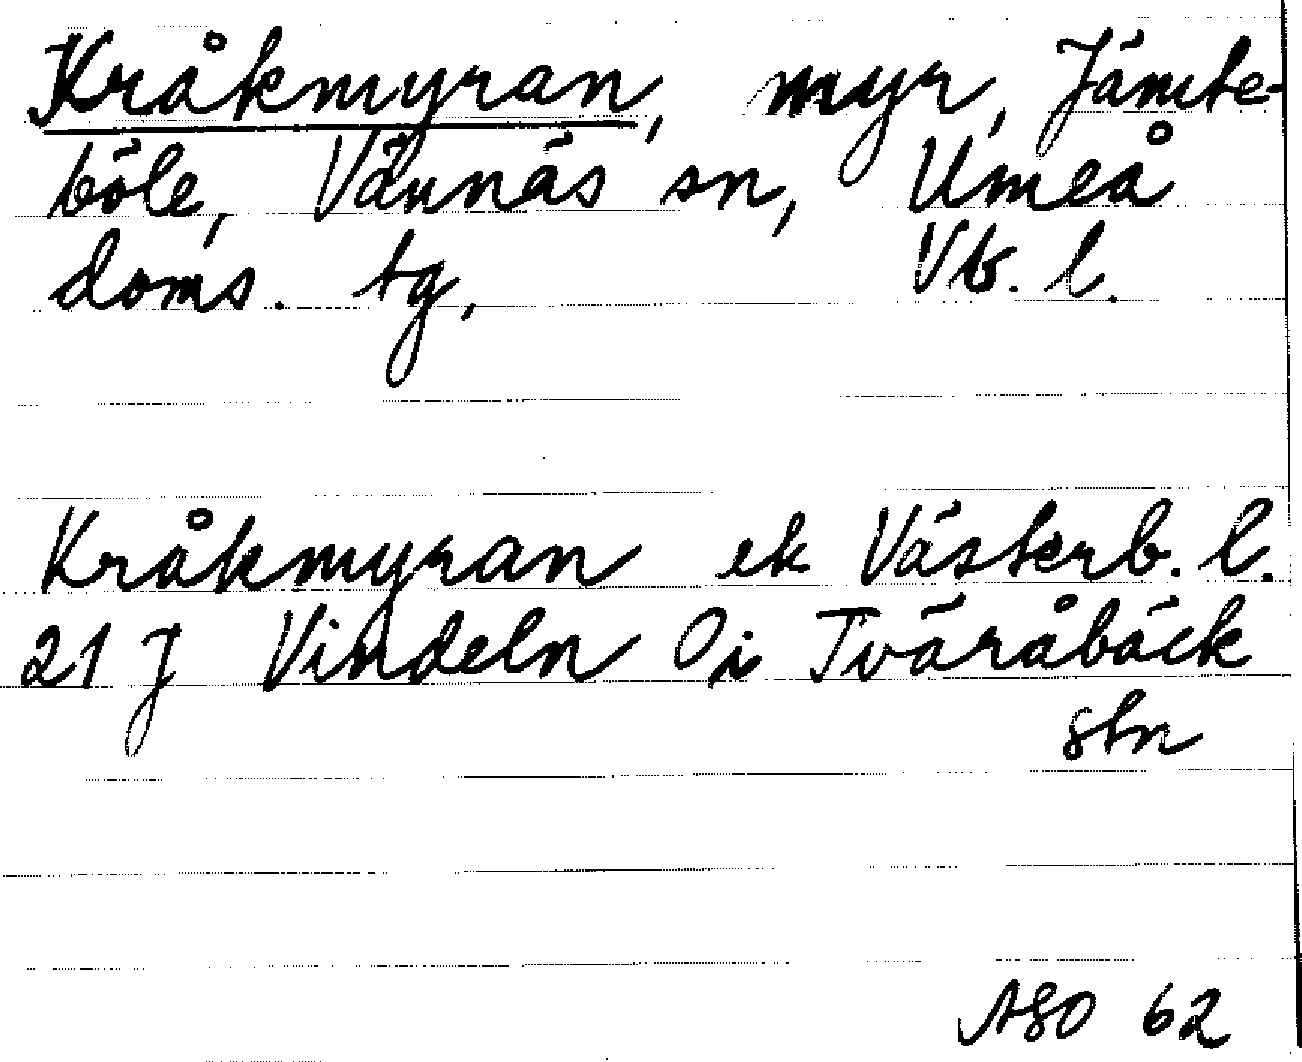 Kråkmyran, myr, Jämte-
böle, Vännäs sn, Umeå
doms. tg, Vb. l.
Kråkmyran ek Västerb. l.
21 J Vindeln O i Tväråbäck
stn
ASO 62